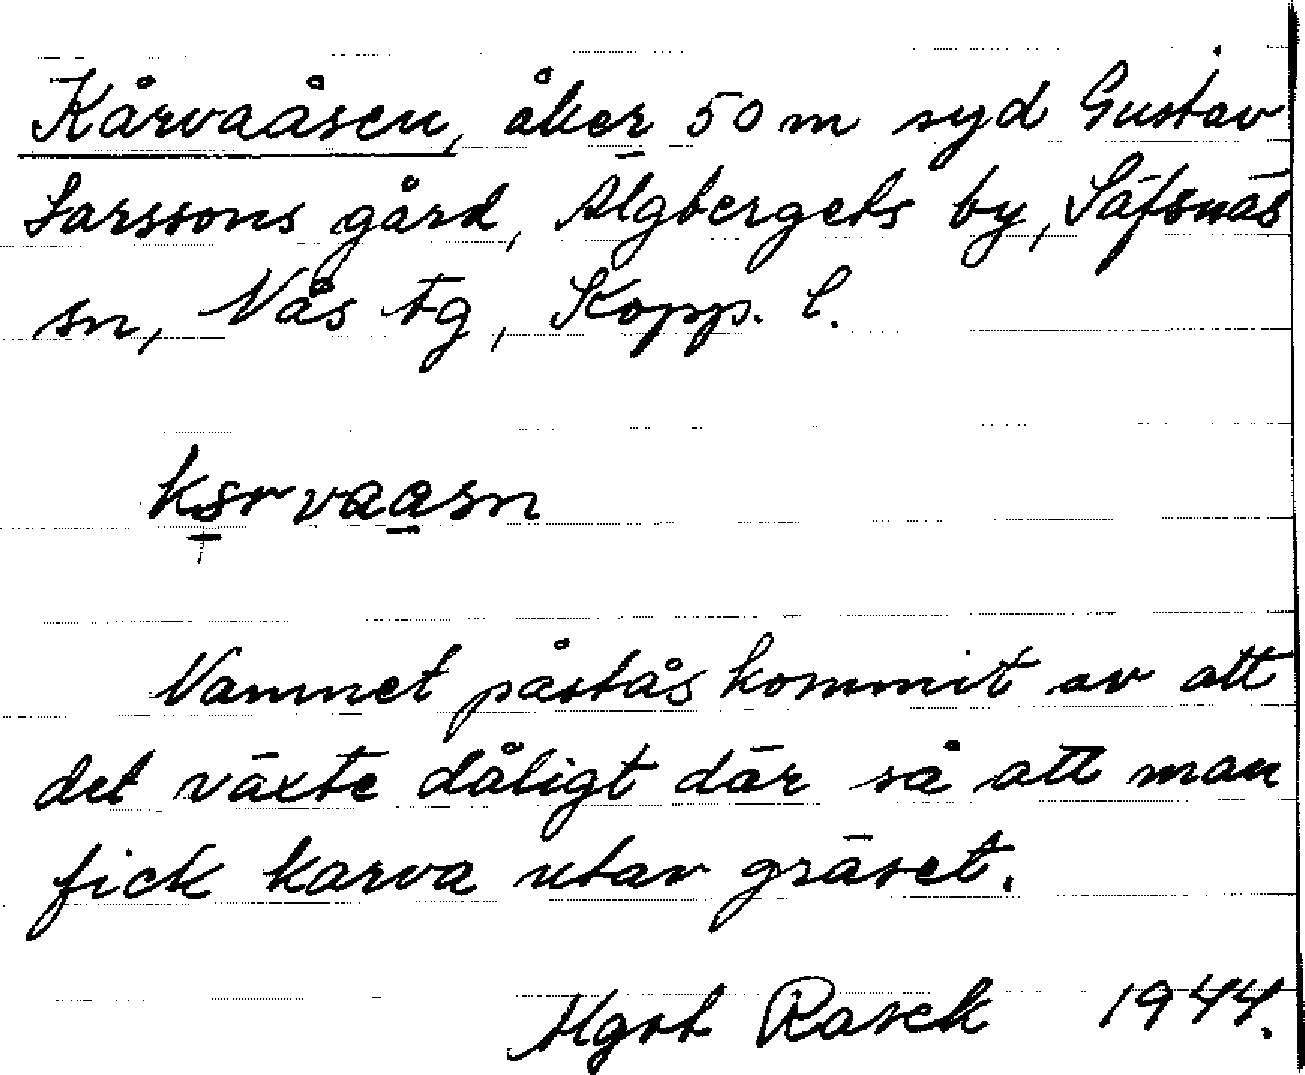 Kårvaåsen, åker 50 m syd Gustav
Larssons gård, Älgbergets by, Säfsnäs
sn, Nås tg, Kopp. l.
Namnet påstås kommit av att
det växte dåligt där så att man
fick karva utav gräset.
Mgvt Rasck 1944.